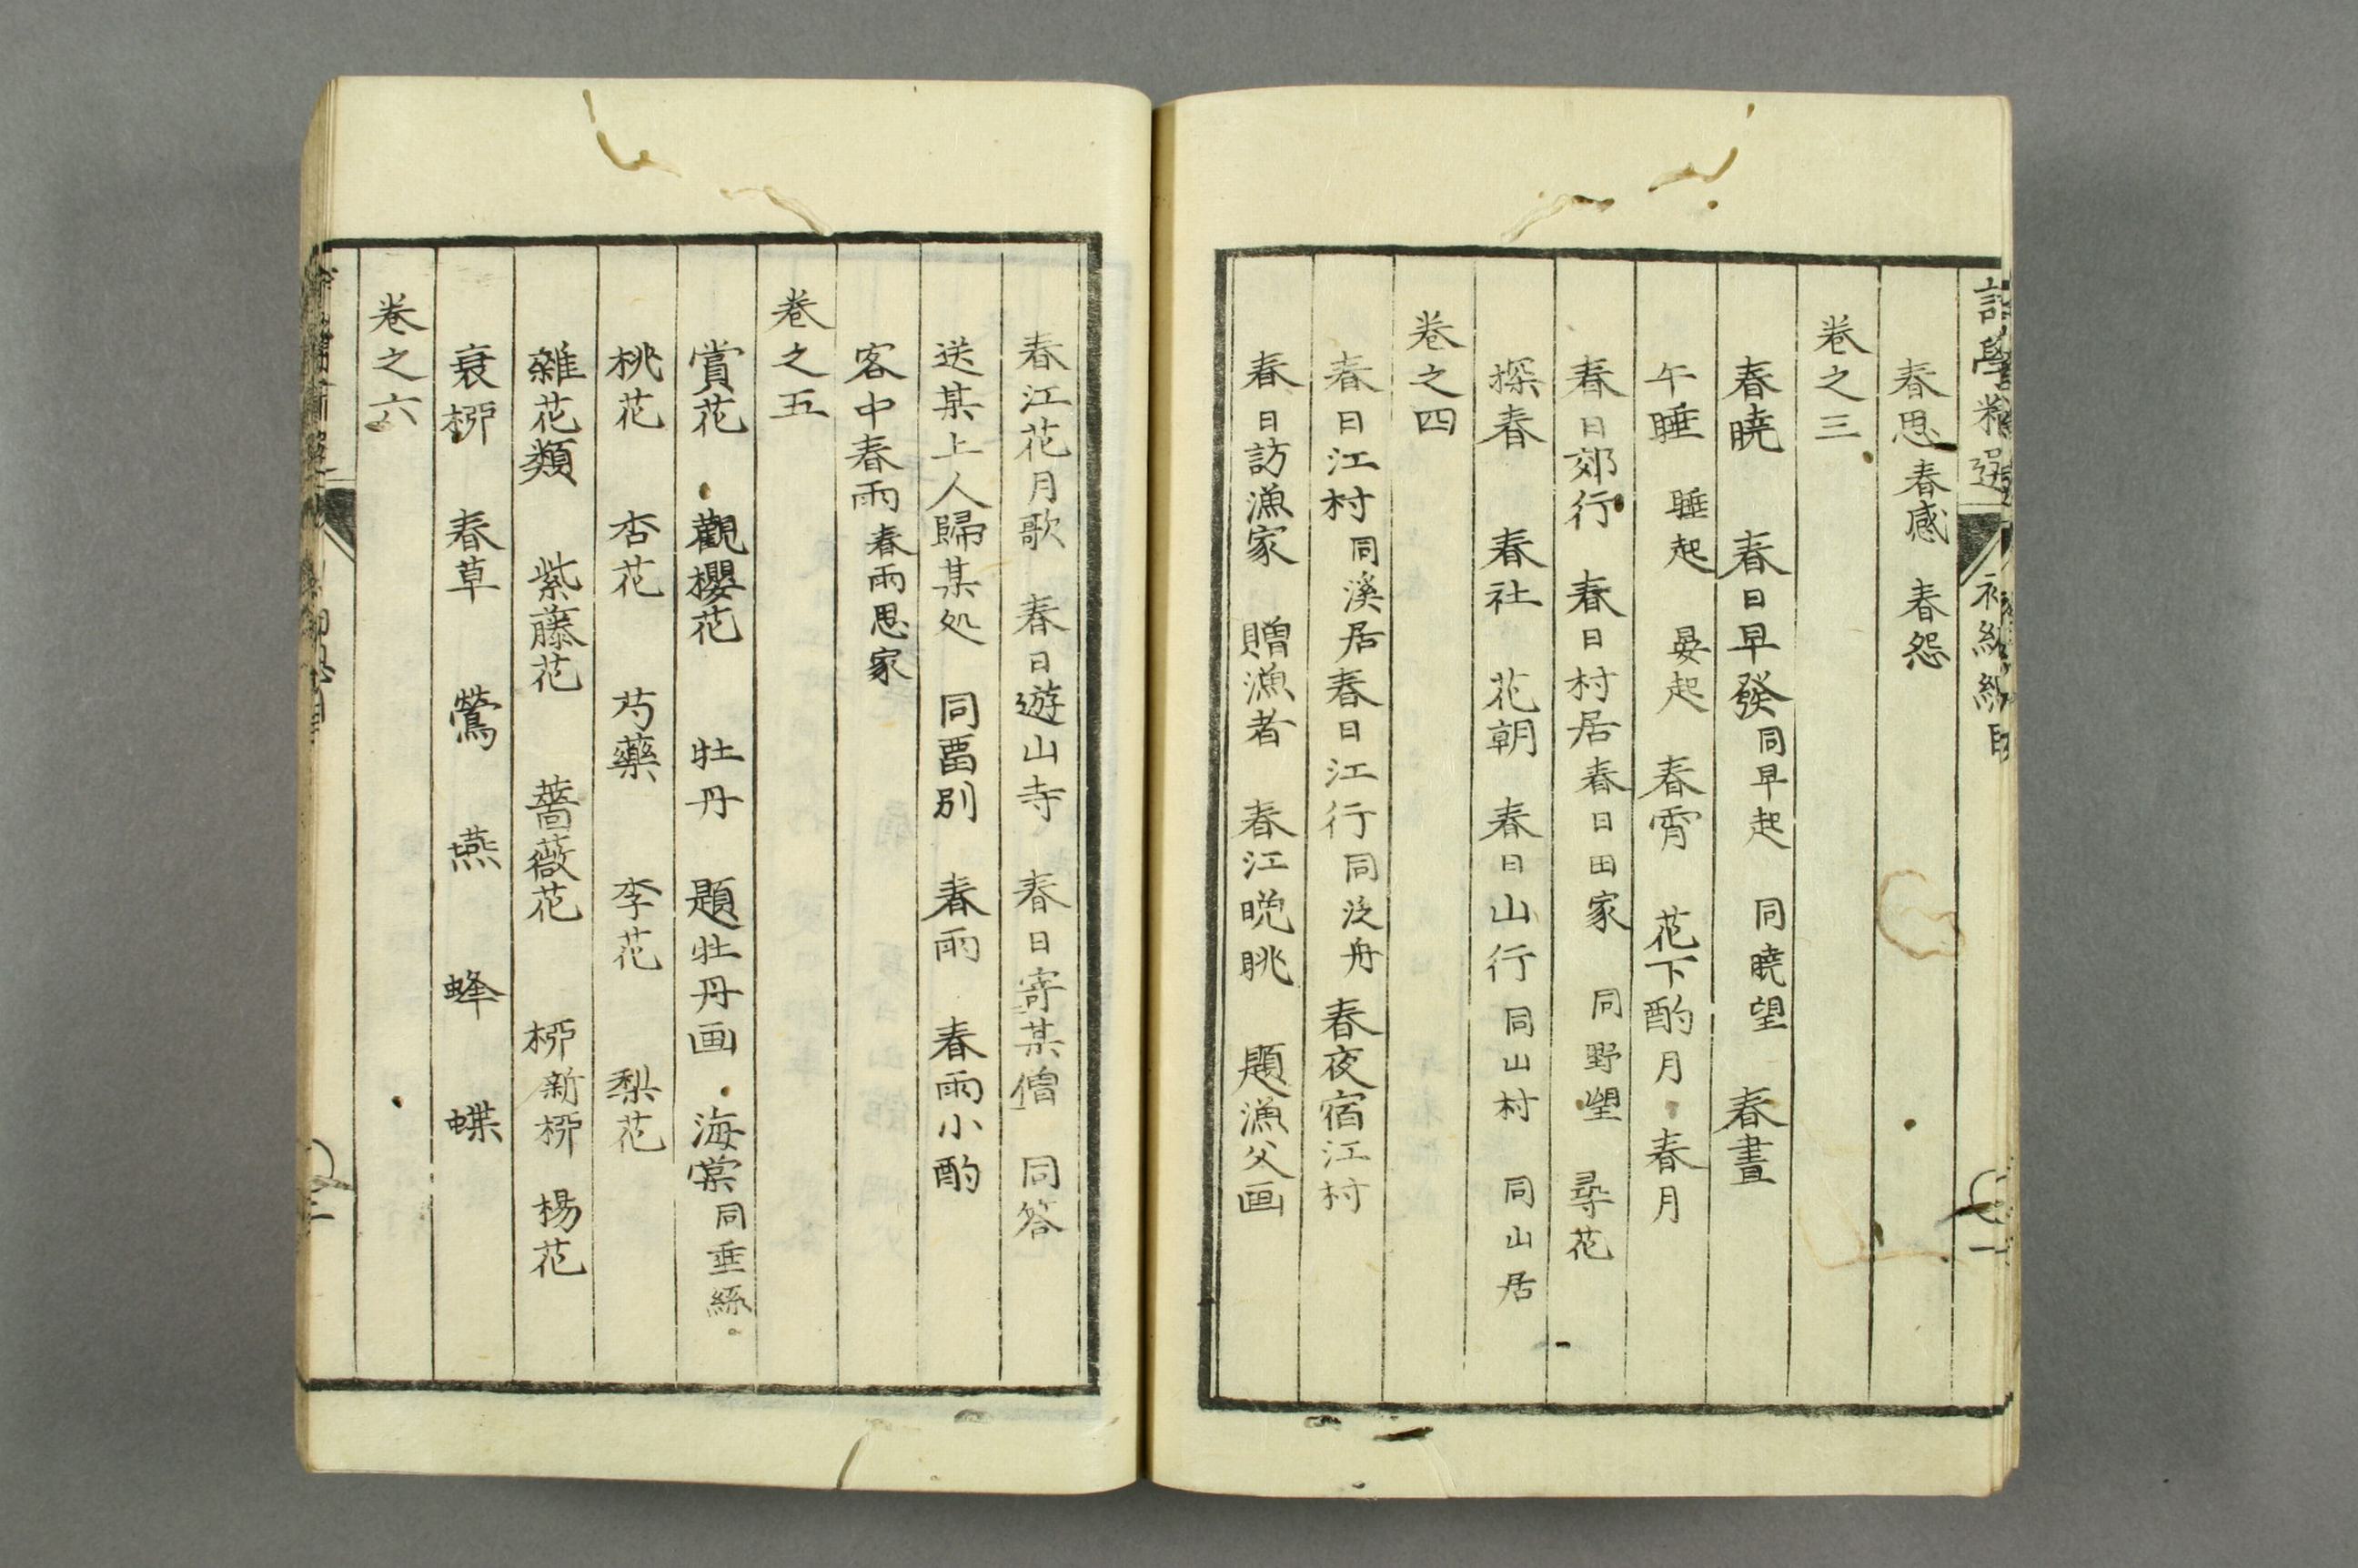 詩學精選
春思 春感 春怨
卷之三
春曉 春日早發 同早起 同曉望 春晝
午睡 睡起 晏起 春宵 花下酌月 春月
春日郊行 春日村居 春日田家 同野望 尋花
探春 春社 花朝 春日山行 同山村 同山居
卷之四
春日江村 同溪居 春日江行 同泛舟 春夜宿江村
春日訪漁家 贈漁者 春江晚眺 題漁父画
春江花月歌 春日遊山寺 春日寄某僧 同答
送某上人歸某処 同畱別 春雨 春雨小酌
客中春雨 春雨思家
卷之五
賞花 觀櫻花 牡丹 題牡丹画 海棠 同垂絲
桃花 杏花 芍藥 李花 梨花
雜花類 紫藤花 薔薇花 柳 新柳 楊花
衰柳 春草 鶯 燕 蜂 蝶
卷之六